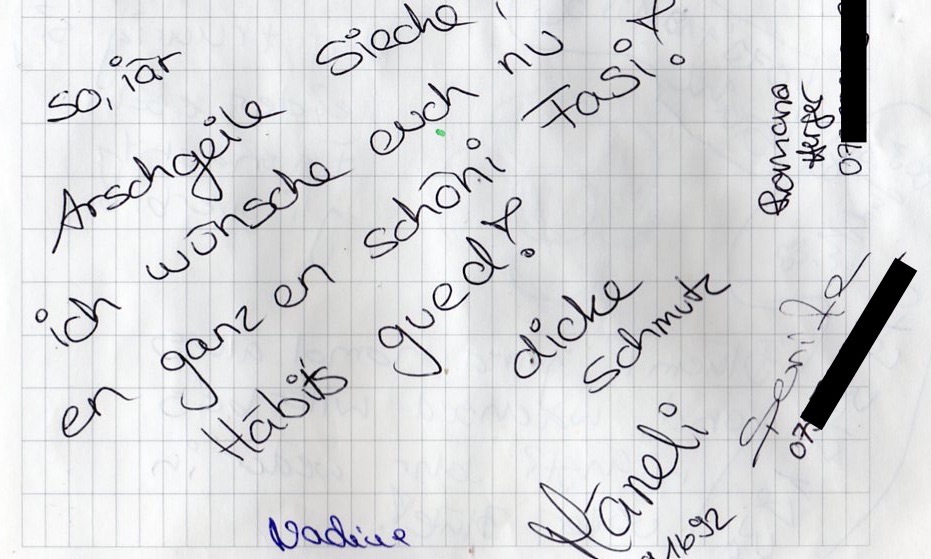 so, iär
Arschgeile Sieche!
ich wünsche euch nu
en ganz en schöni Fasi!
Häbits gued!
dicke
Schmutz
Näneli
Nadine
Romana
Herger
07
07
1692